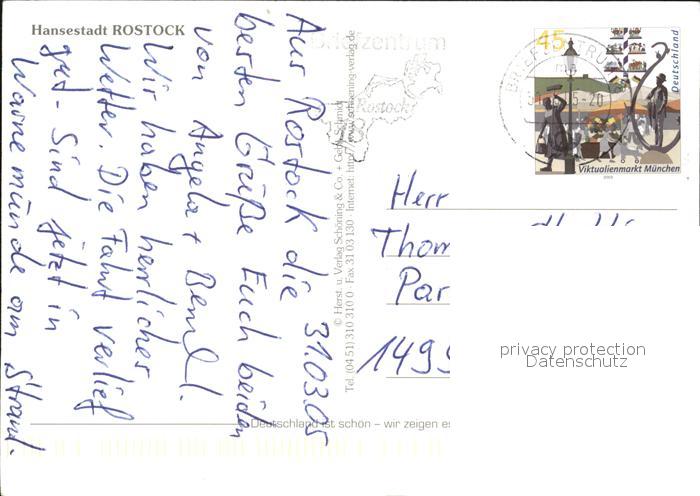 Hansestadt ROSTOCK
Aus Rostock die 31.03.05
besten Grüße Euch beiden
von Angela + Bernd.
Wir haben herrliches
Wetter. Die Fahrt verlief
gut. Sind jetzt in
Warnemünde am Strand.
© Herst. u. Verlag Schöning & Co. + Gebr. Schmidt
Tel. (0451) 310 310 0 · Fax 31 03 130 · Internet: http://www.schoening-verlag.de
Briefzentrum
Rostock
45
Deutschland
BRIEFZENTRUM
Viktualienmarkt München
2003
Herr
Thom
Par
1499
privacy protection
Datenschutz
Deutschland ist schön – wir zeigen es